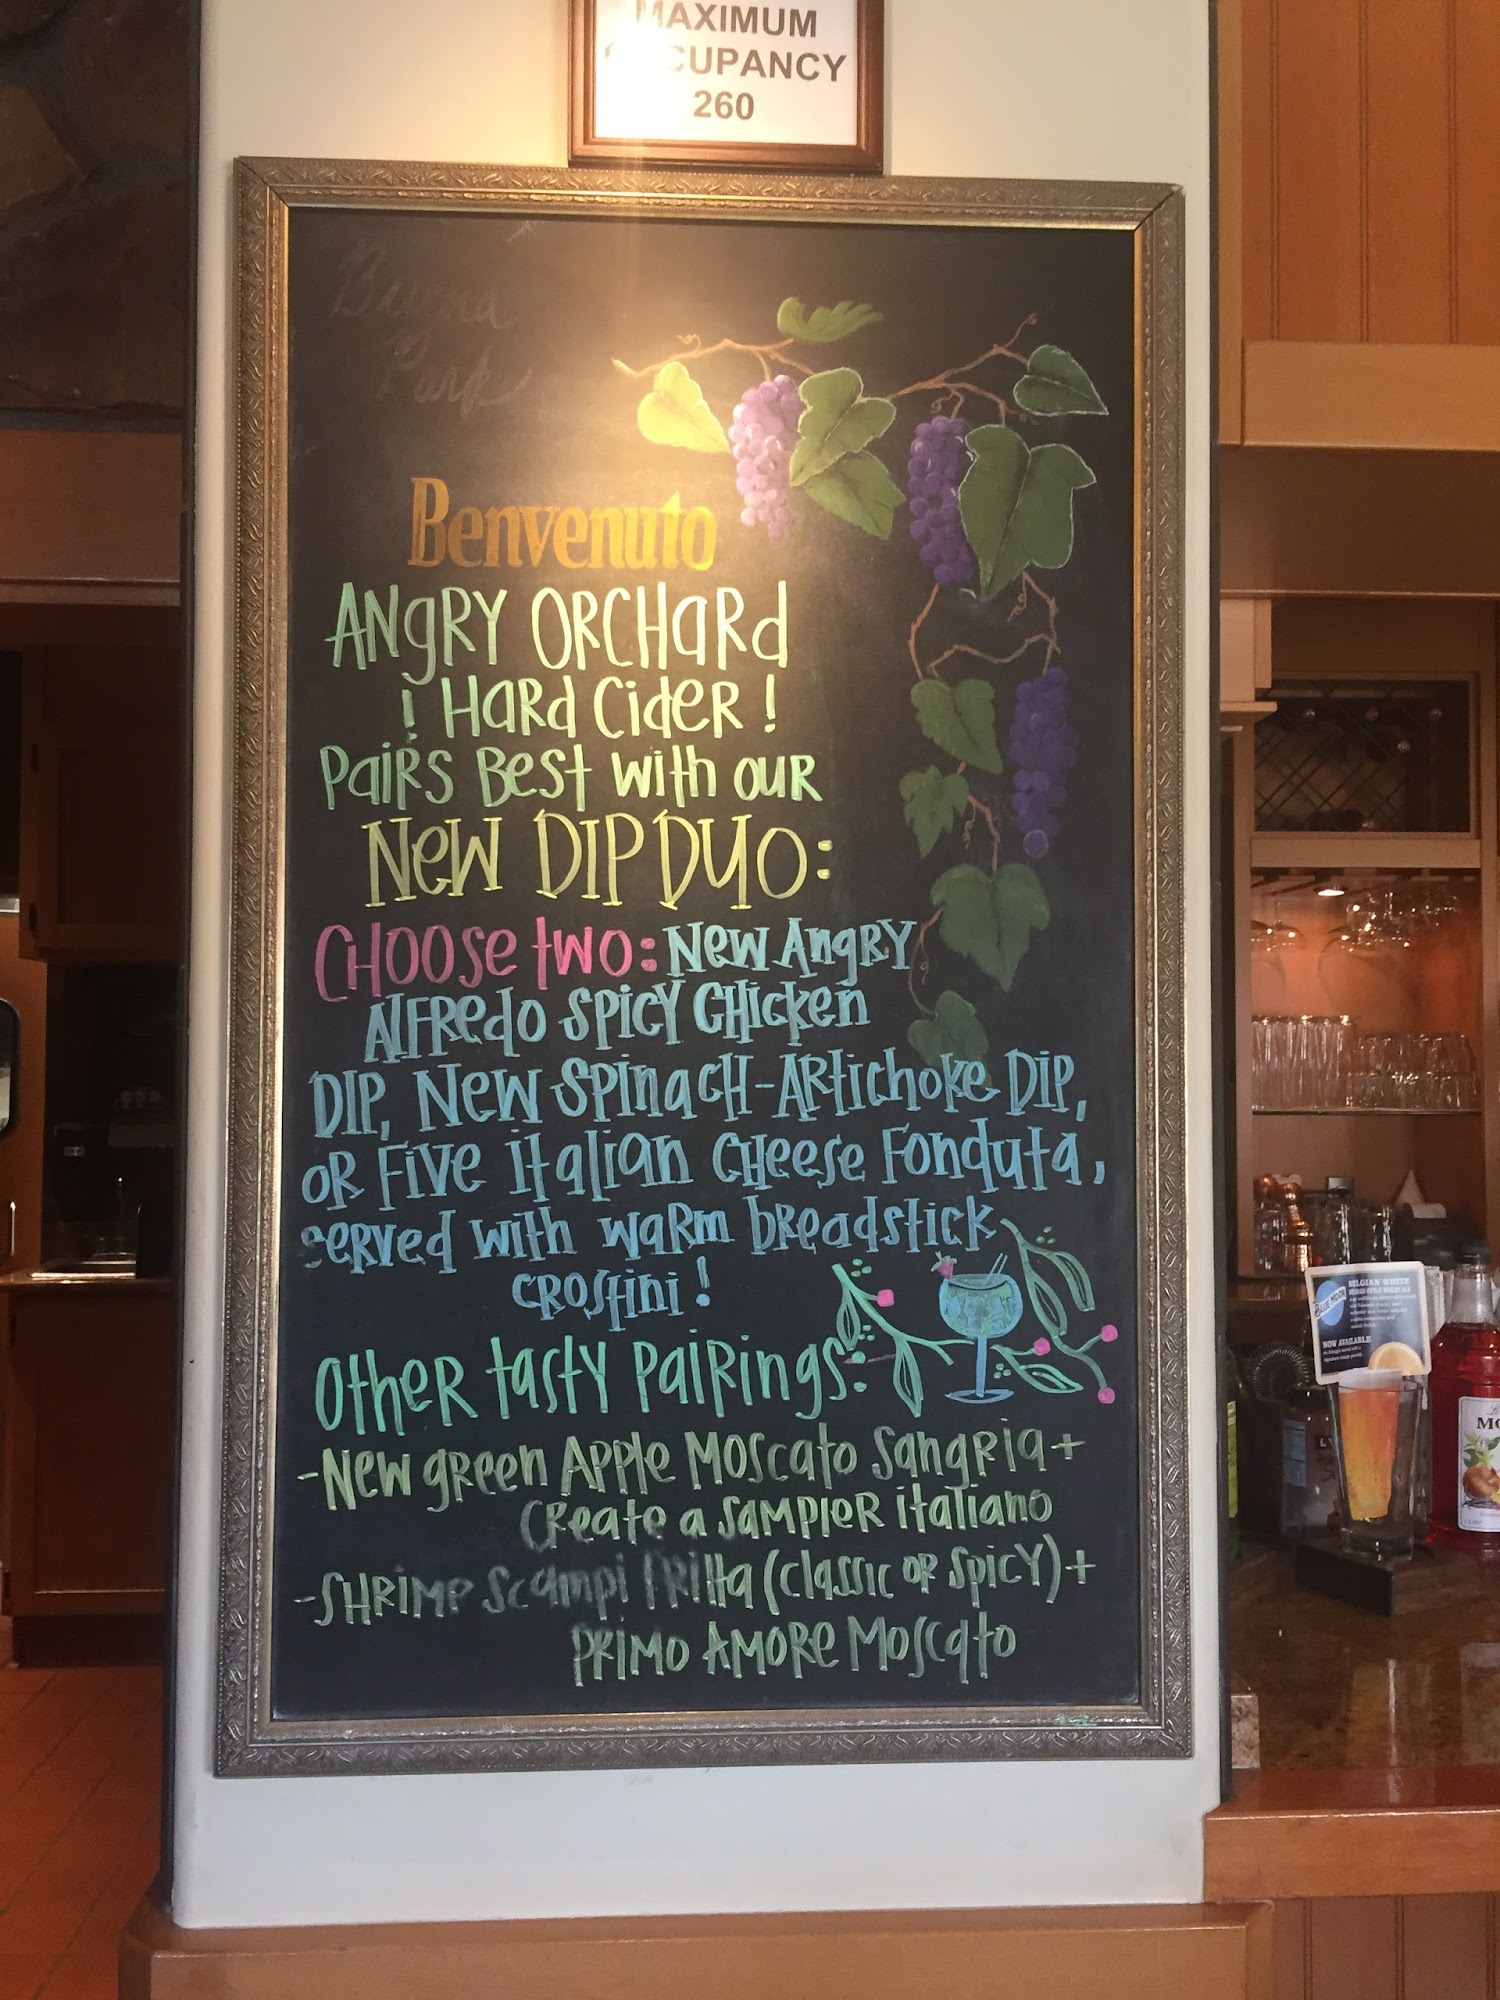 MAXIMUM
OCCUPANCY
260
Buena
Park
Benvenuto
ANGRY ORCHARD
! HARD CIDER !
PAIRS BEST WITH OUR
NEW DIP DUO:
CHOOSE TWO: NEW ANGRY
ALFREDO SPICY CHICKEN
DIP, NEW SPINACH-ARTICHOKE DIP,
OR FIVE ITALIAN CHEESE FONDUTA,
SERVED WITH WARM BREADSTICK
CROSTINI!
OTHER TASTY PAIRINGS:
-NEW GREEN APPLE MOSCATO SANGRIA +
CREATE A SAMPLER ITALIANO
-SHRIMP SCAMPI FRITTA (CLASSIC OR SPICY) +
PRIMO AMORE MOSCATO
BLUE MOON
BELGIAN WHITE
BELGIAN-STYLE WHEAT ALE
NOW AVAILABLE